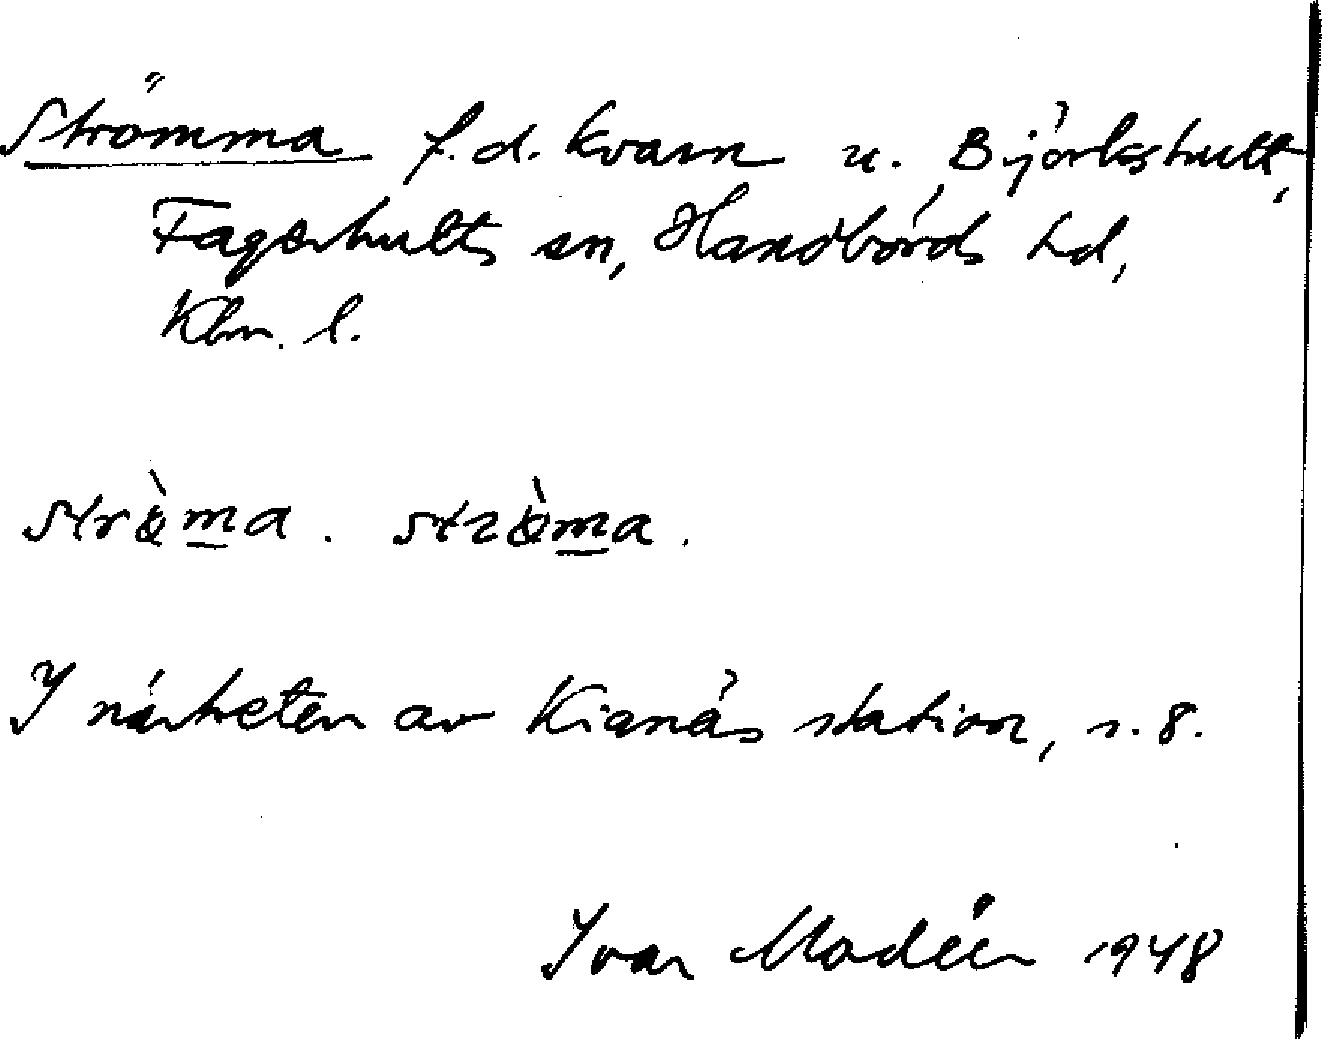 Strömma f.d. kvarn u. Björkshult,
Fagerhults sn, Handbörds hd,
Klm. l.
strö̀m̲a. strö̀m̲a.
I närheten av Kianäs station, s. 8.
Ivar Modéer 1948